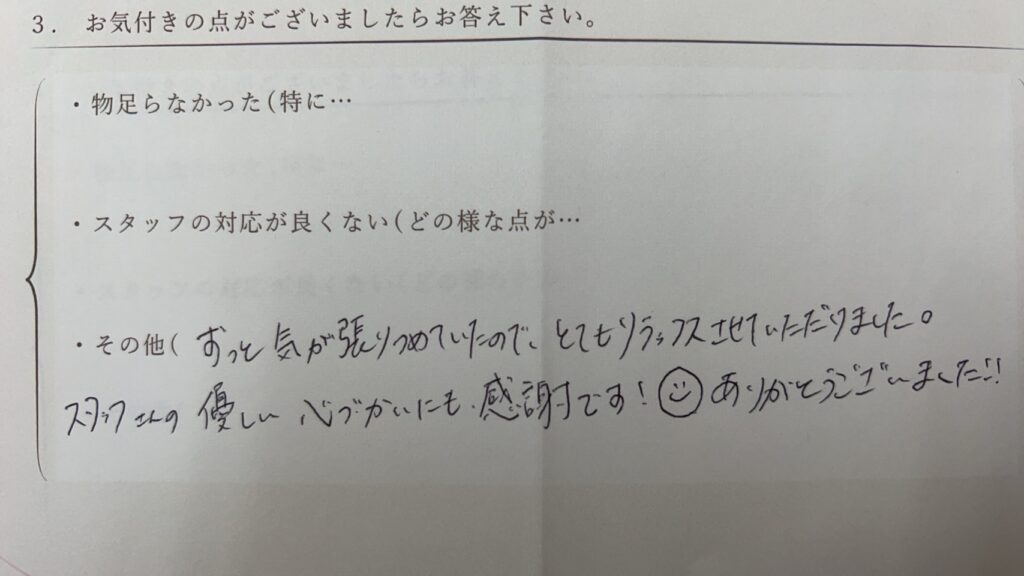 3. お気付きの点がございましたらお答え下さい。
・物足らなかった(特に…
・スタッフの対応が良くない(どの様な点が…
・その他( ずっと気が張りつめていたので、とてもリラックスさせていただけました。
スタッフさんの優しい心づかいにも感謝です!ありがとうございました!!